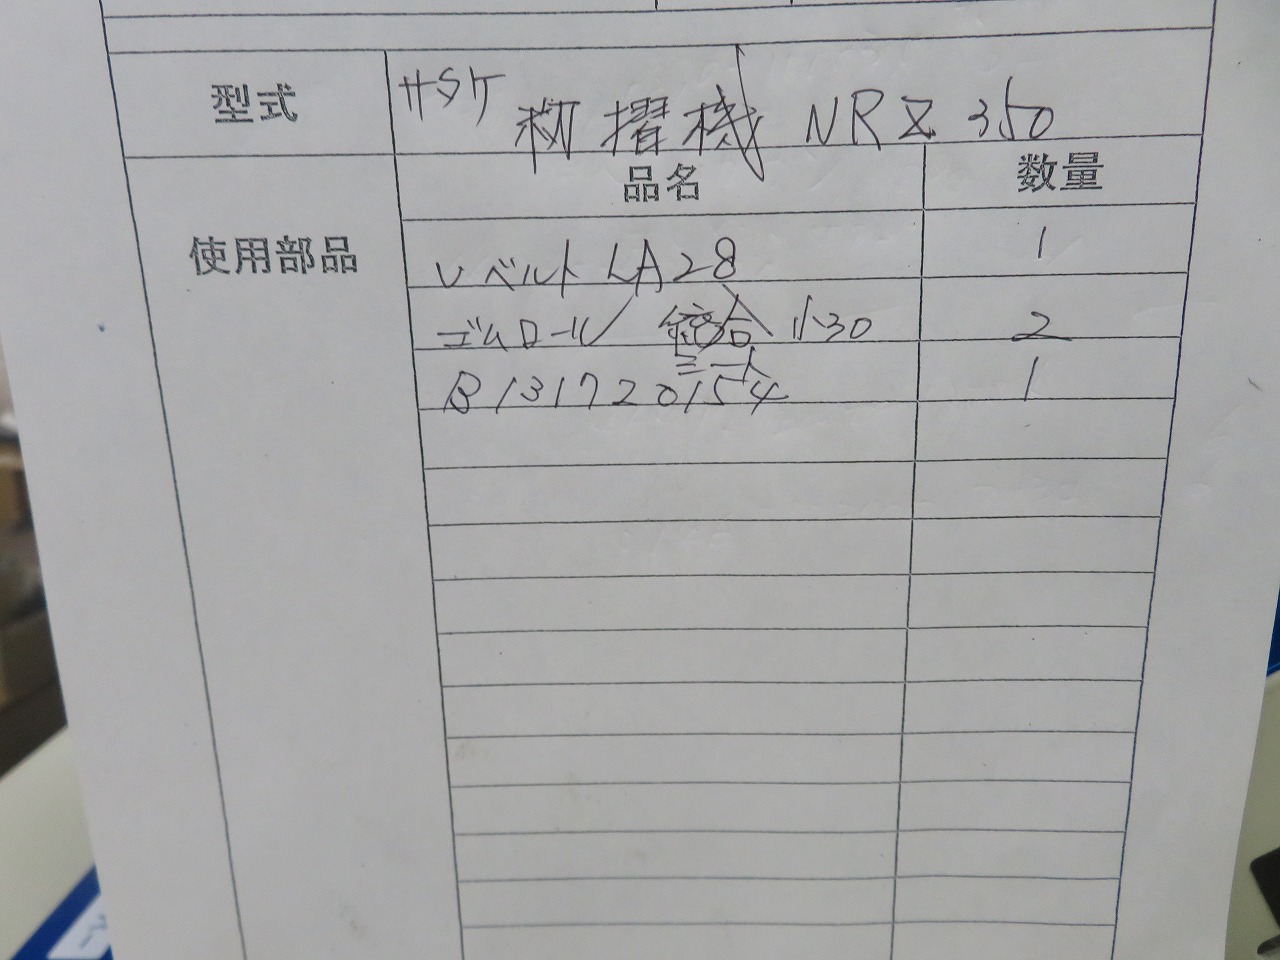 型式 サタケ 籾摺機 NRZ350
品名 数量
使用部品
Vベルト LA28 1
ゴムロール 統合 小30 2
B131720154 1